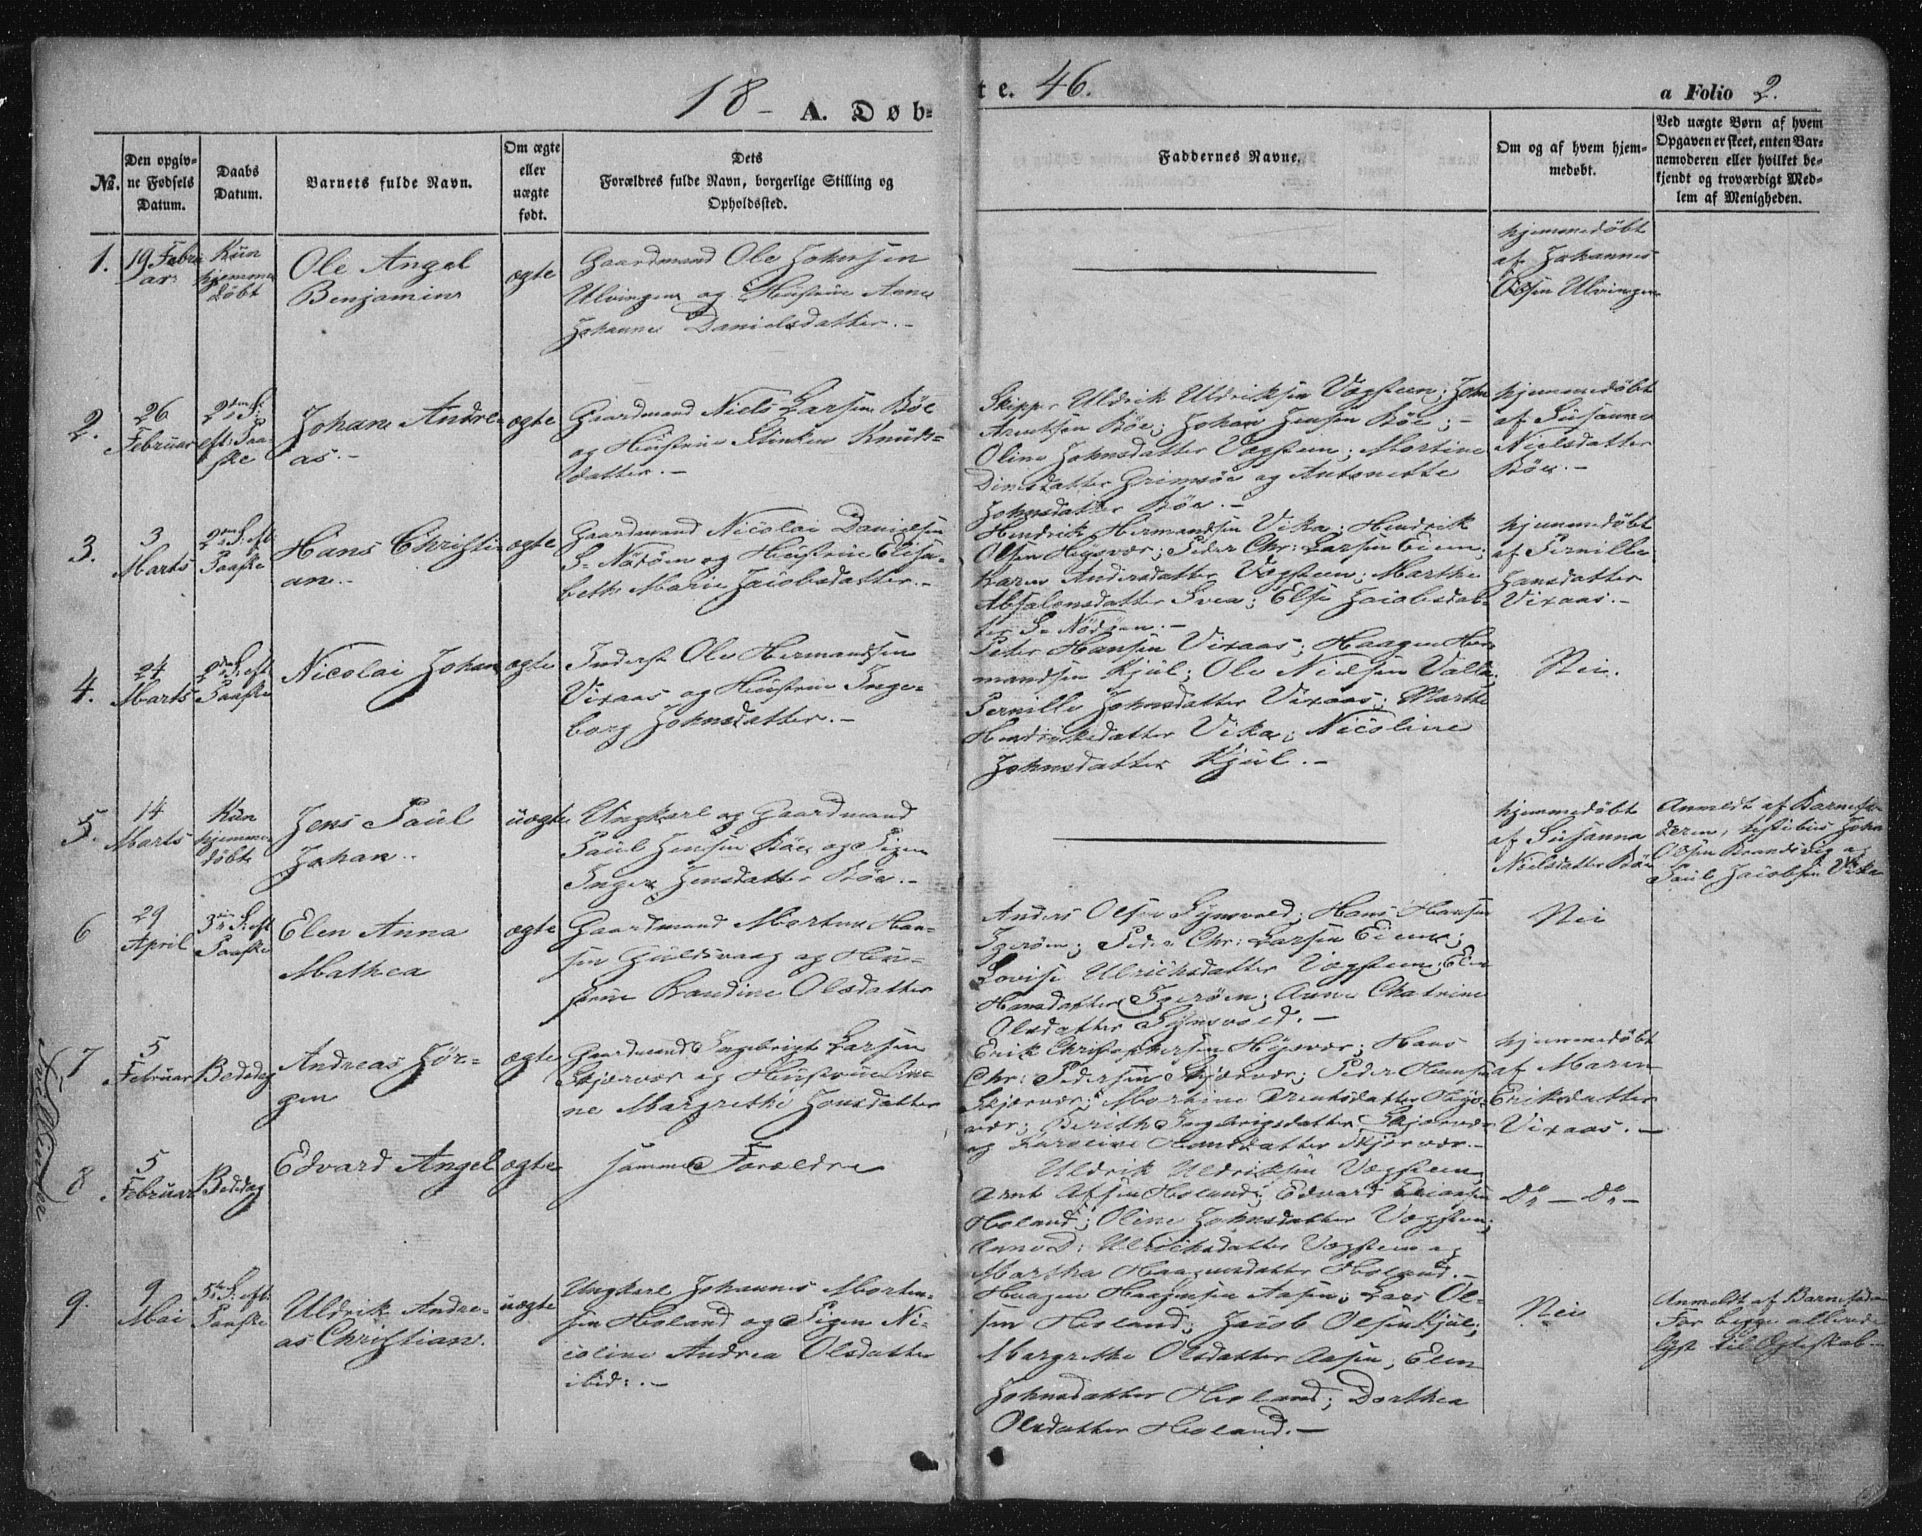 18- A. Døb-
te. 46.
a Folio 2.
No.
Den opgiv-
ne Fødsels
Datum.
Daabs
Datum.
Barnets fulde Navn.
Om ægte
eller
uægte
født.
Dets
Forældres fulde Navn, borgerlige Stilling og
Opholdssted.
Faddernes Navne.
Om og af hvem hjem-
medøbt.
Ved uægte Børn af hvem
Opgaven er skeet, enten Bar-
nemoderen eller hvilket be-
kjendt og troværdigt Med-
lem af Menigheden.
1.
19 Febru
ar
Kun
hjemme
døbt
Ole Angel
Benjamin
ægte
Gaardmand Ole Johnsen
Ulvingen og Hustrue Anne
Johanne Danielsdatter.-
hjemmedøbt
af Johannes
Olsen Ulvingen
2.
26
Februar
2den S:
eft: Paa-
ske
Johan Andre-
as.-
ægte
Gaardmand Niels Larsen Böe
og Hustrue Stinken Knuds-
datter.-
Skipper Uldrik Uldriksen Vægsteen; John
Arntsen Böe; Johan Jensen Böe;-
Oline Johnsdatter Vægsteen; Mortine
Dinesdatter Grimsöe og Antonette
Johnsdatter Böe.-
hjemmedøbt
af Susanna
Nielsdatter
Böe.-
3.
3
Marts
2den S: eft
Paaske
Hans Christi-
an.-
ægte
Gaardmand Nicolai Danielsen
S. Nöröen og Hustrue Elisa-
beth Marie Jacobsdatter.-
Hendrik Hermandsen Vika; Hendrik
Olsen Höysvær; Peder Chr: Larsen Eiem;
Karen Andersdatter Vægsteen; Marthe
Absalonsdatter Svea; Else Jacobsdat-
ter S. Nöröen.-
hjemmedøbt
af Pernille
Hansdatter
Vixaas.-
4.
24
Marts
2den S: eft
Paaske
Nicolai Johan
ægte
Inderst Ole Hermandsen
Vixaas og Hustrue Inge-
borg Johnsdatter.-
Peter Hansen Vixaas; Haagen Her-
mandsen Kjul; Ole Nielsen Valla;
Pernille Johnsdatter Vixaas; Marthe
Hendriksdatter Vika; Nicoline
Johnsdatter Kjul.-
Nei.
5.
14
Marts
Kun
hjemme
døbt
Jens Paul
Johan.
uægte
Ungkarl og Gaardmand
Paul Jensen Böe og Pigen
Inger Jensdatter Böe.-
hjemmedøbt
af Susanna
Nielsdatter Böe
Anmeldt af Barnefa-
deren, testibus John
Olsen Brandsvig og
Paul Jacobsen Vika
6
29
April
3die S: eft
Paaske
Elen Anna
Mathea
ægte
Gaardmand Morten Han-
sen Guldsvaag og Hu-
strue Randine Olsdatter
Anders Olsen Synsvold; Hans Hansen
Igeröen; Peder Chr: Larsen Eiem;
Lovise Ulrichsdatter Vægsteen; Elen
Hansdatter Igeröen; Anne Chatrine
Olsdatter Synsvold.-
Nei
Tvillinger
7
5
Februar
Bededag
Andreas Jör-
gen
ægte
Gaardmand Ingebrigt Larsen
Skjærvær og Hustrue An-
ne Margrethe Jonsdatter
Erik Christophersen Höysvær; Hans
Chr: Pedersen Skjærvær; Peder Hansen
Skjærvær; Mortine Arentsdatter Höys-
vær; Berith Ingebrigtsdatter Skjærvær
og Karoline Hansdatter Skjærvær.-
hjemmedøbt
af Maren
Eriksdatter
Vixaas.-
8
5
Februar
Bededag
Edvard Angel
ægte
samme Forældre
Uldrik Uldriksen Vægsteen;
Arnt Olsen Holand; Edvard
Holand; Oline Johnsdatter Vægsteen;
Ulrichsdatter Vægsteen og
Martha Haagensdatter Holand.-
Do - Do -
9.
9
Mai
5te S: eft:
Paaske
Uldrik Andre-
as Christian.
uægte
Ungkarl Johannes Morten-
sen Holand og Pigen Ni-
coline Andrea Olsdatter
ibid:.-
Haagen Haagensen Aasen; Lars Ol-
sen Holand; Jacob Olsen Kjul;
Margrethe Olsdatter Aasen; Elen
Johnsdatter Holand; Dorthea
Olsdatter Holand.-
Nei
Anmeldt af Barnefaderen
For begge allerede
lyst til Ægteskab-